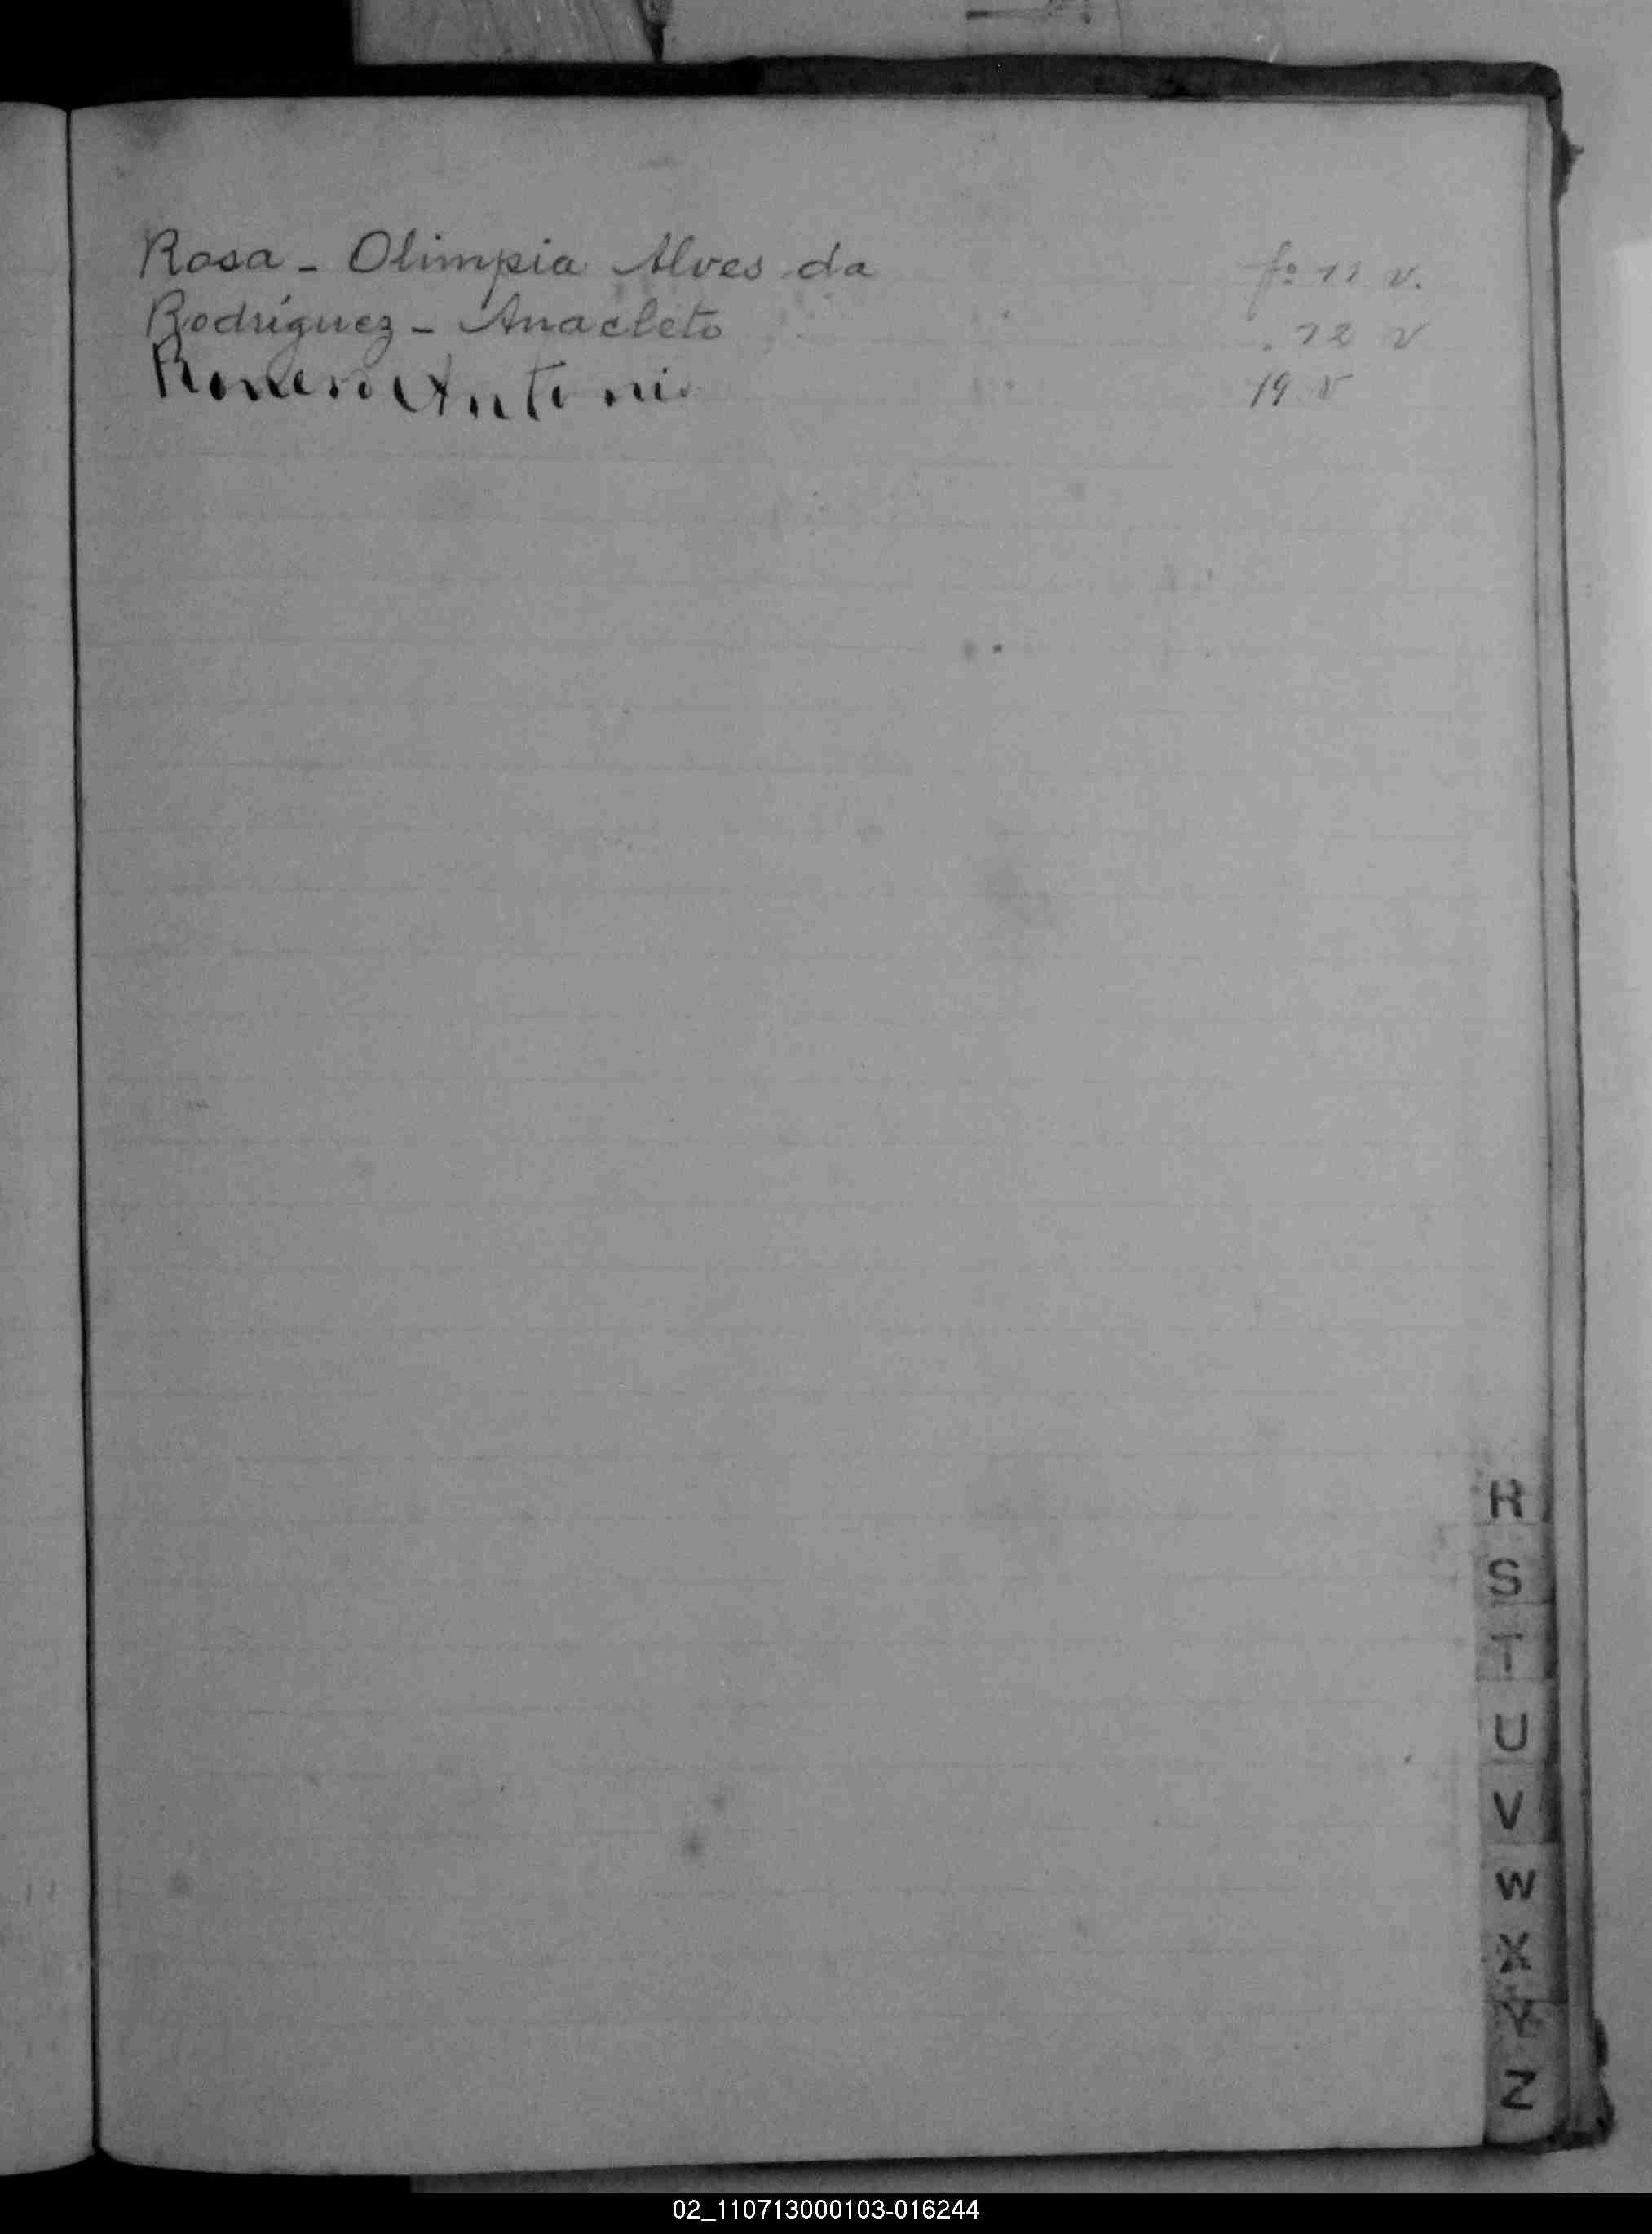 Rosa - Olimpia Alves da fº 11 v.
Rodríguez - Anacleto . 12 v
Romero Antonio 19 v
R
S
T
U
V
W
X
Y
Z
02_110713000103-016244